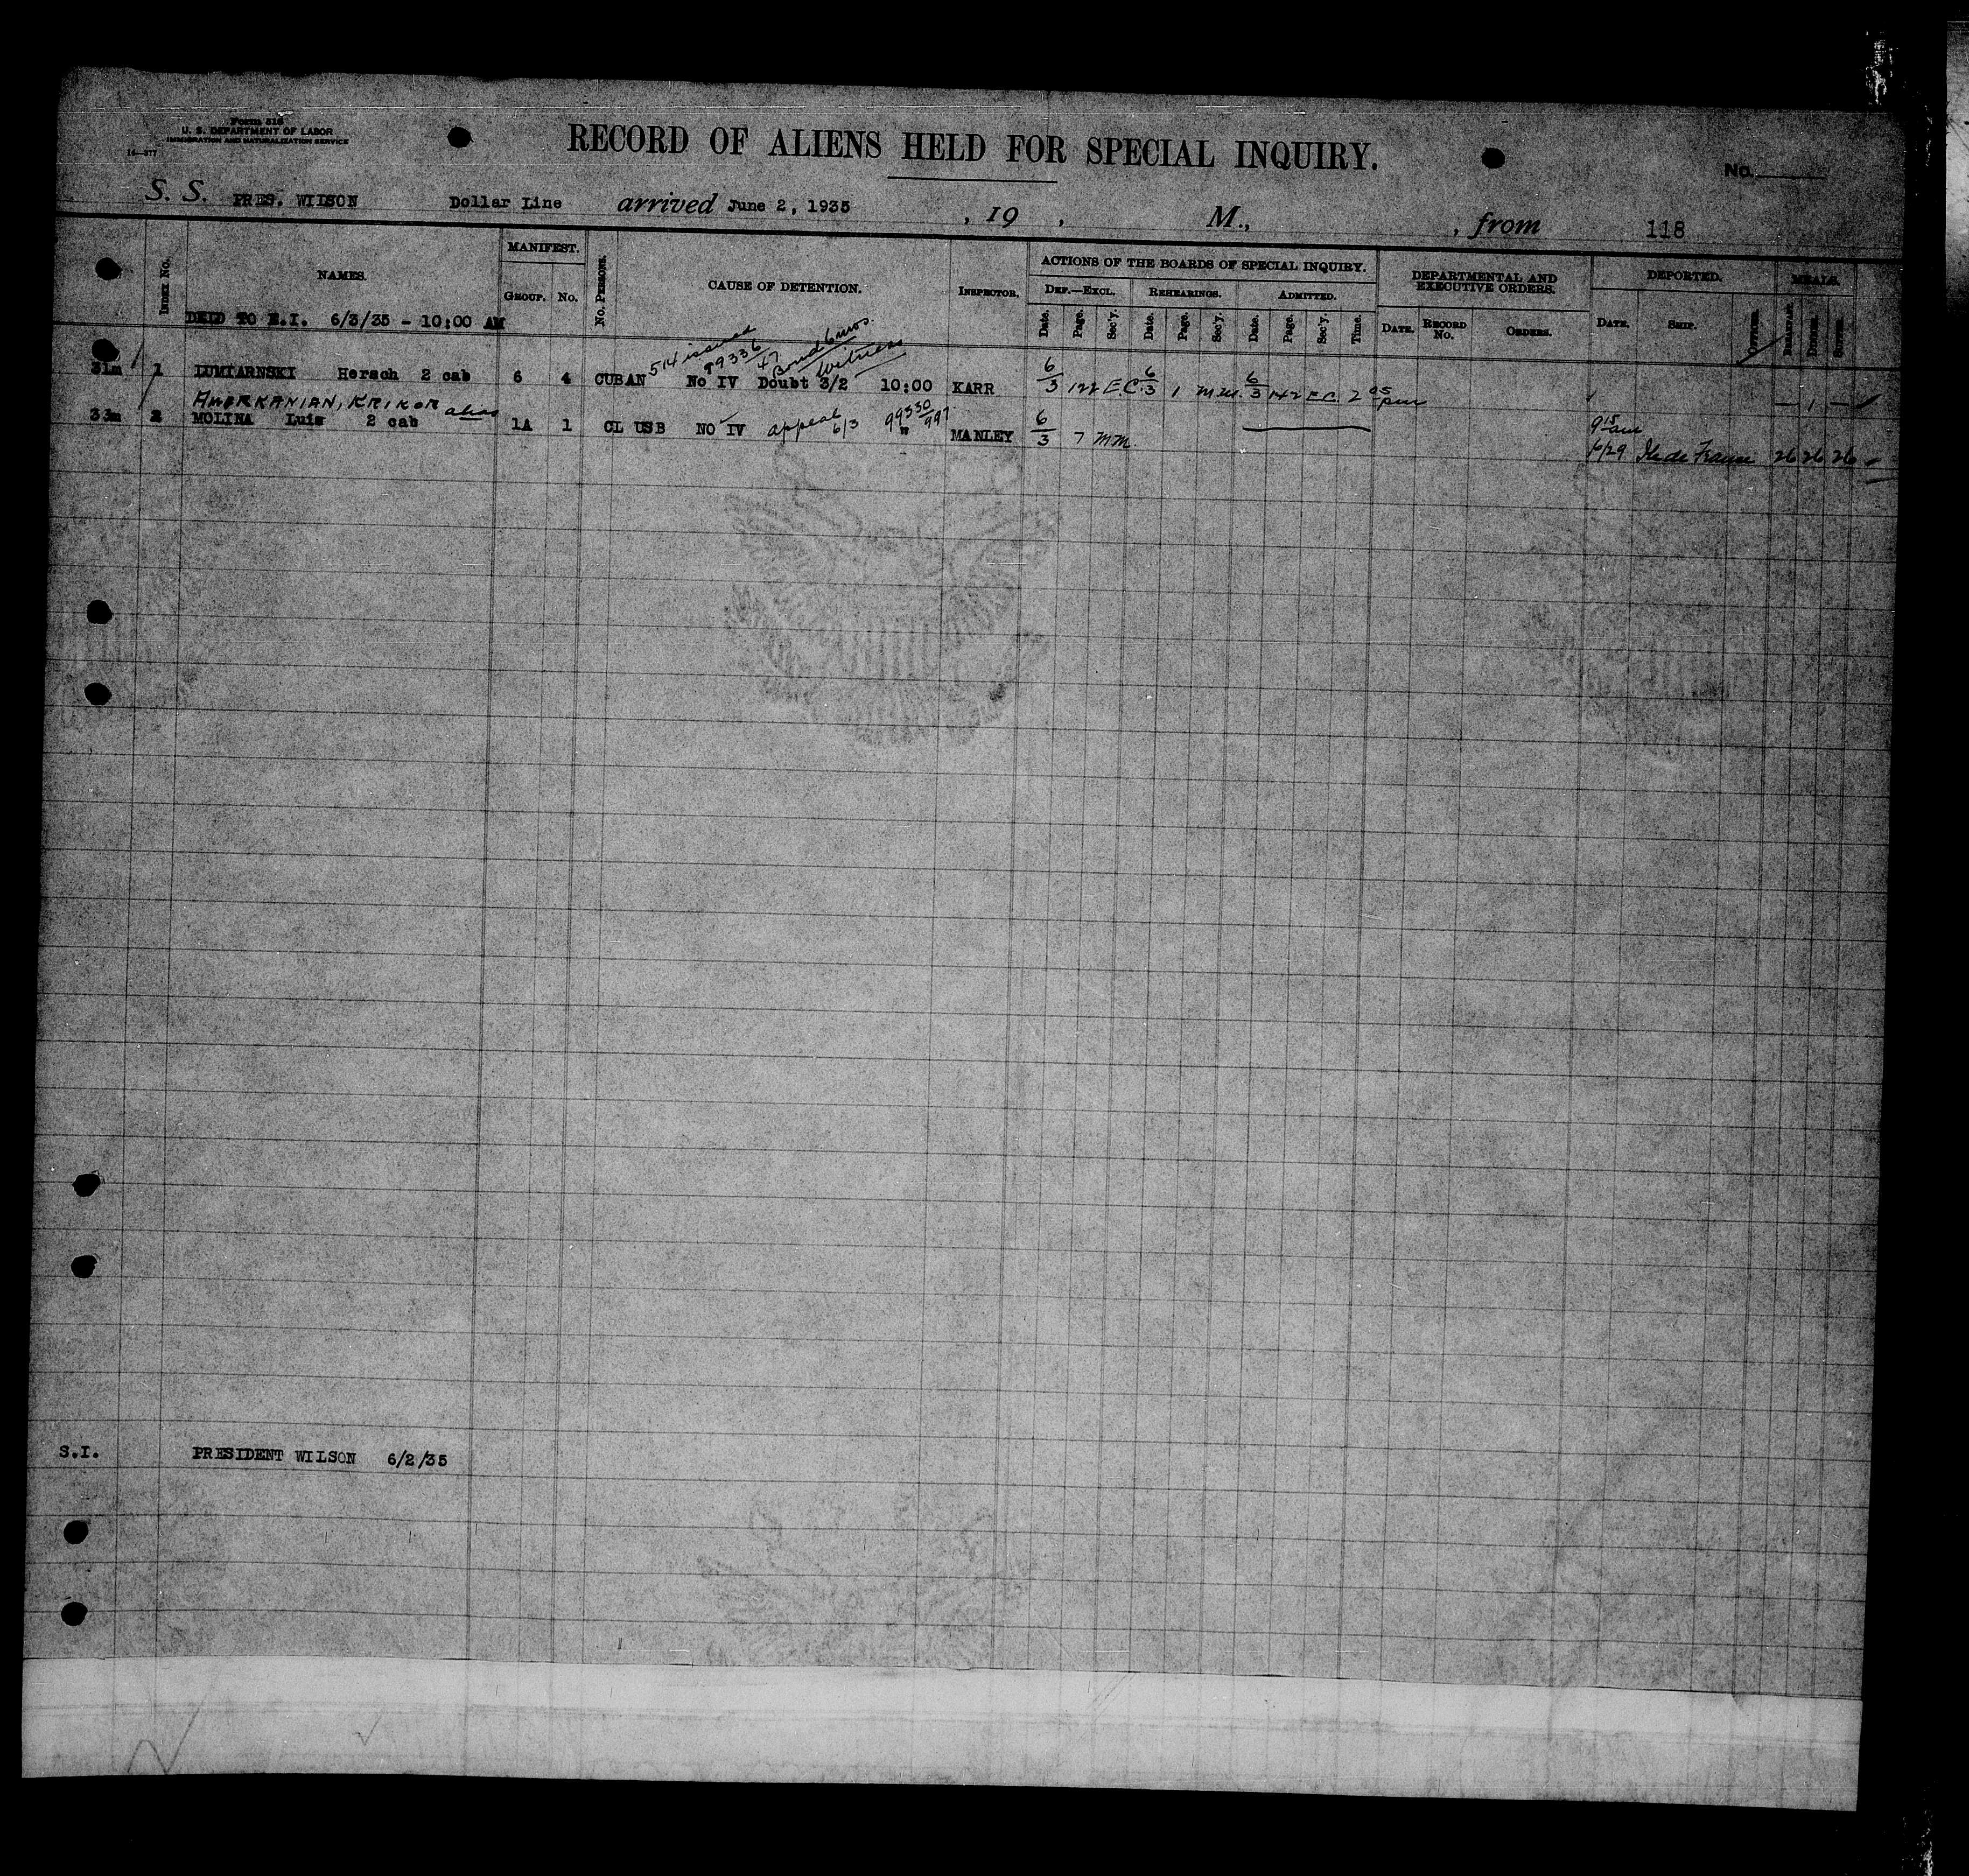 Form 518
U. S. DEPARTMENT OF LABOR
IMMIGRATION AND NATURALIZATION SERVICE
16—577
RECORD OF ALIENS HELD FOR SPECIAL INQUIRY.
No.
S. S. PRES. WILSON Dollar Line arrived June 2, 1935 , 19 , M., , from 118
INDEX NO. NAMES. MANIFEST. GROUP. NO. NO. PERSONS. CAUSE OF DETENTION. INSPECTOR. ACTIONS OF THE BOARDS OF SPECIAL INQUIRY. DEPARTMENTAL AND EXECUTIVE ORDERS. DEPORTED. MEALS.
DEF.—EXCL. REHEARINGS. ADMITTED.
Date. Page. Sec'y. Date. Page. Sec'y. Date. Page. Sec'y. Time. DATE. RECORD NO. ORDERS. DATE. SHIP. BREAKFAST. DINNER. SUPPER.
DELD TO E.I. 6/3/35 - 10:00 AM
514 issued 99336/47 Bond 6 mos. Witness
31m 1 LUMIARNSKI Hersch 2 cab 6 4 CUBAN No IV Doubt 3/2 10:00 KARR 6/3 122 E.C. 6/3 1 M.M. 6/3 142 E.C. 2 05 pm — 1 —
AMERKANIAN, KRIKOR alias
33m 2 MOLINA Luis 2 cab 1A 1 CL USB NO IV appeal 6/3 99330/997 MANLEY 6/3 7 M.M. 9 15 am 6/29 Ile de France 26 26 26
S.I. PRESIDENT WILSON 6/2/35